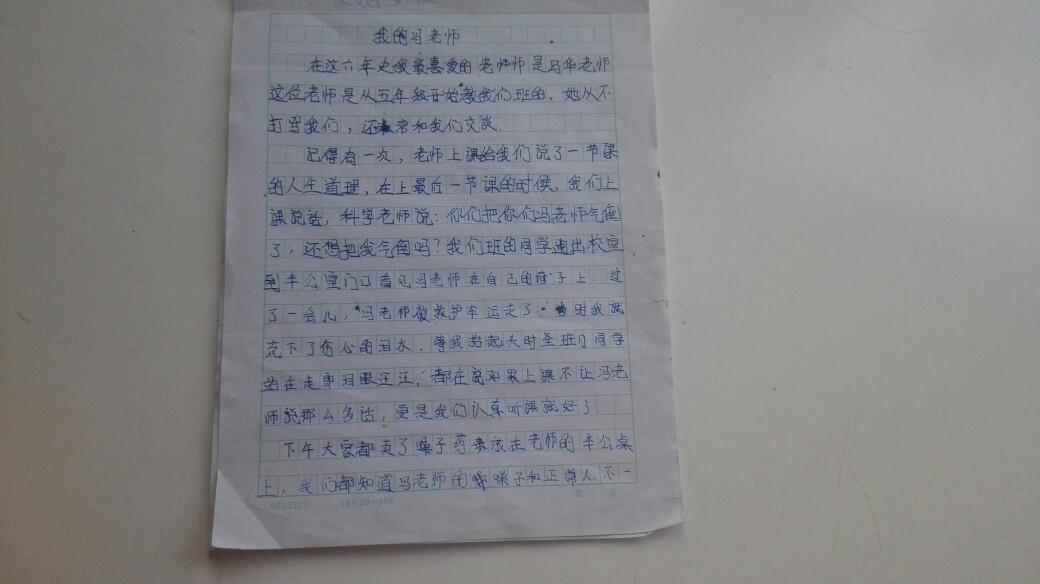 我的冯老师
在这六年史我最喜爱的老师师是冯华老师
这位老师是从五年级开始教我们班的.她从不
打骂我们，还常和我们交谈.
记得有一次，老师上课给我们说了一节课
的人生道理，在上最后一节课的时候，我们上
课说话，科学老师说：你们把你们冯老师气倒
了，还想把我气倒吗？我们班的同学跑出校室
到半公室门口看见冯老师在自己的椅子上.过
了一会儿，冯老师被救护车运走了.当时我就
充下了伤心的泪水.等我抬起大时全班同学
站在走郎泪眼汪汪，都在说如果上课不让冯老
师说那么多话，要是我们认真听课就好了.
下午大家都卖了嗓子药来放在老师的半公桌
上，我们都知道冯老师的嗓子和正常人不一
10×20=200